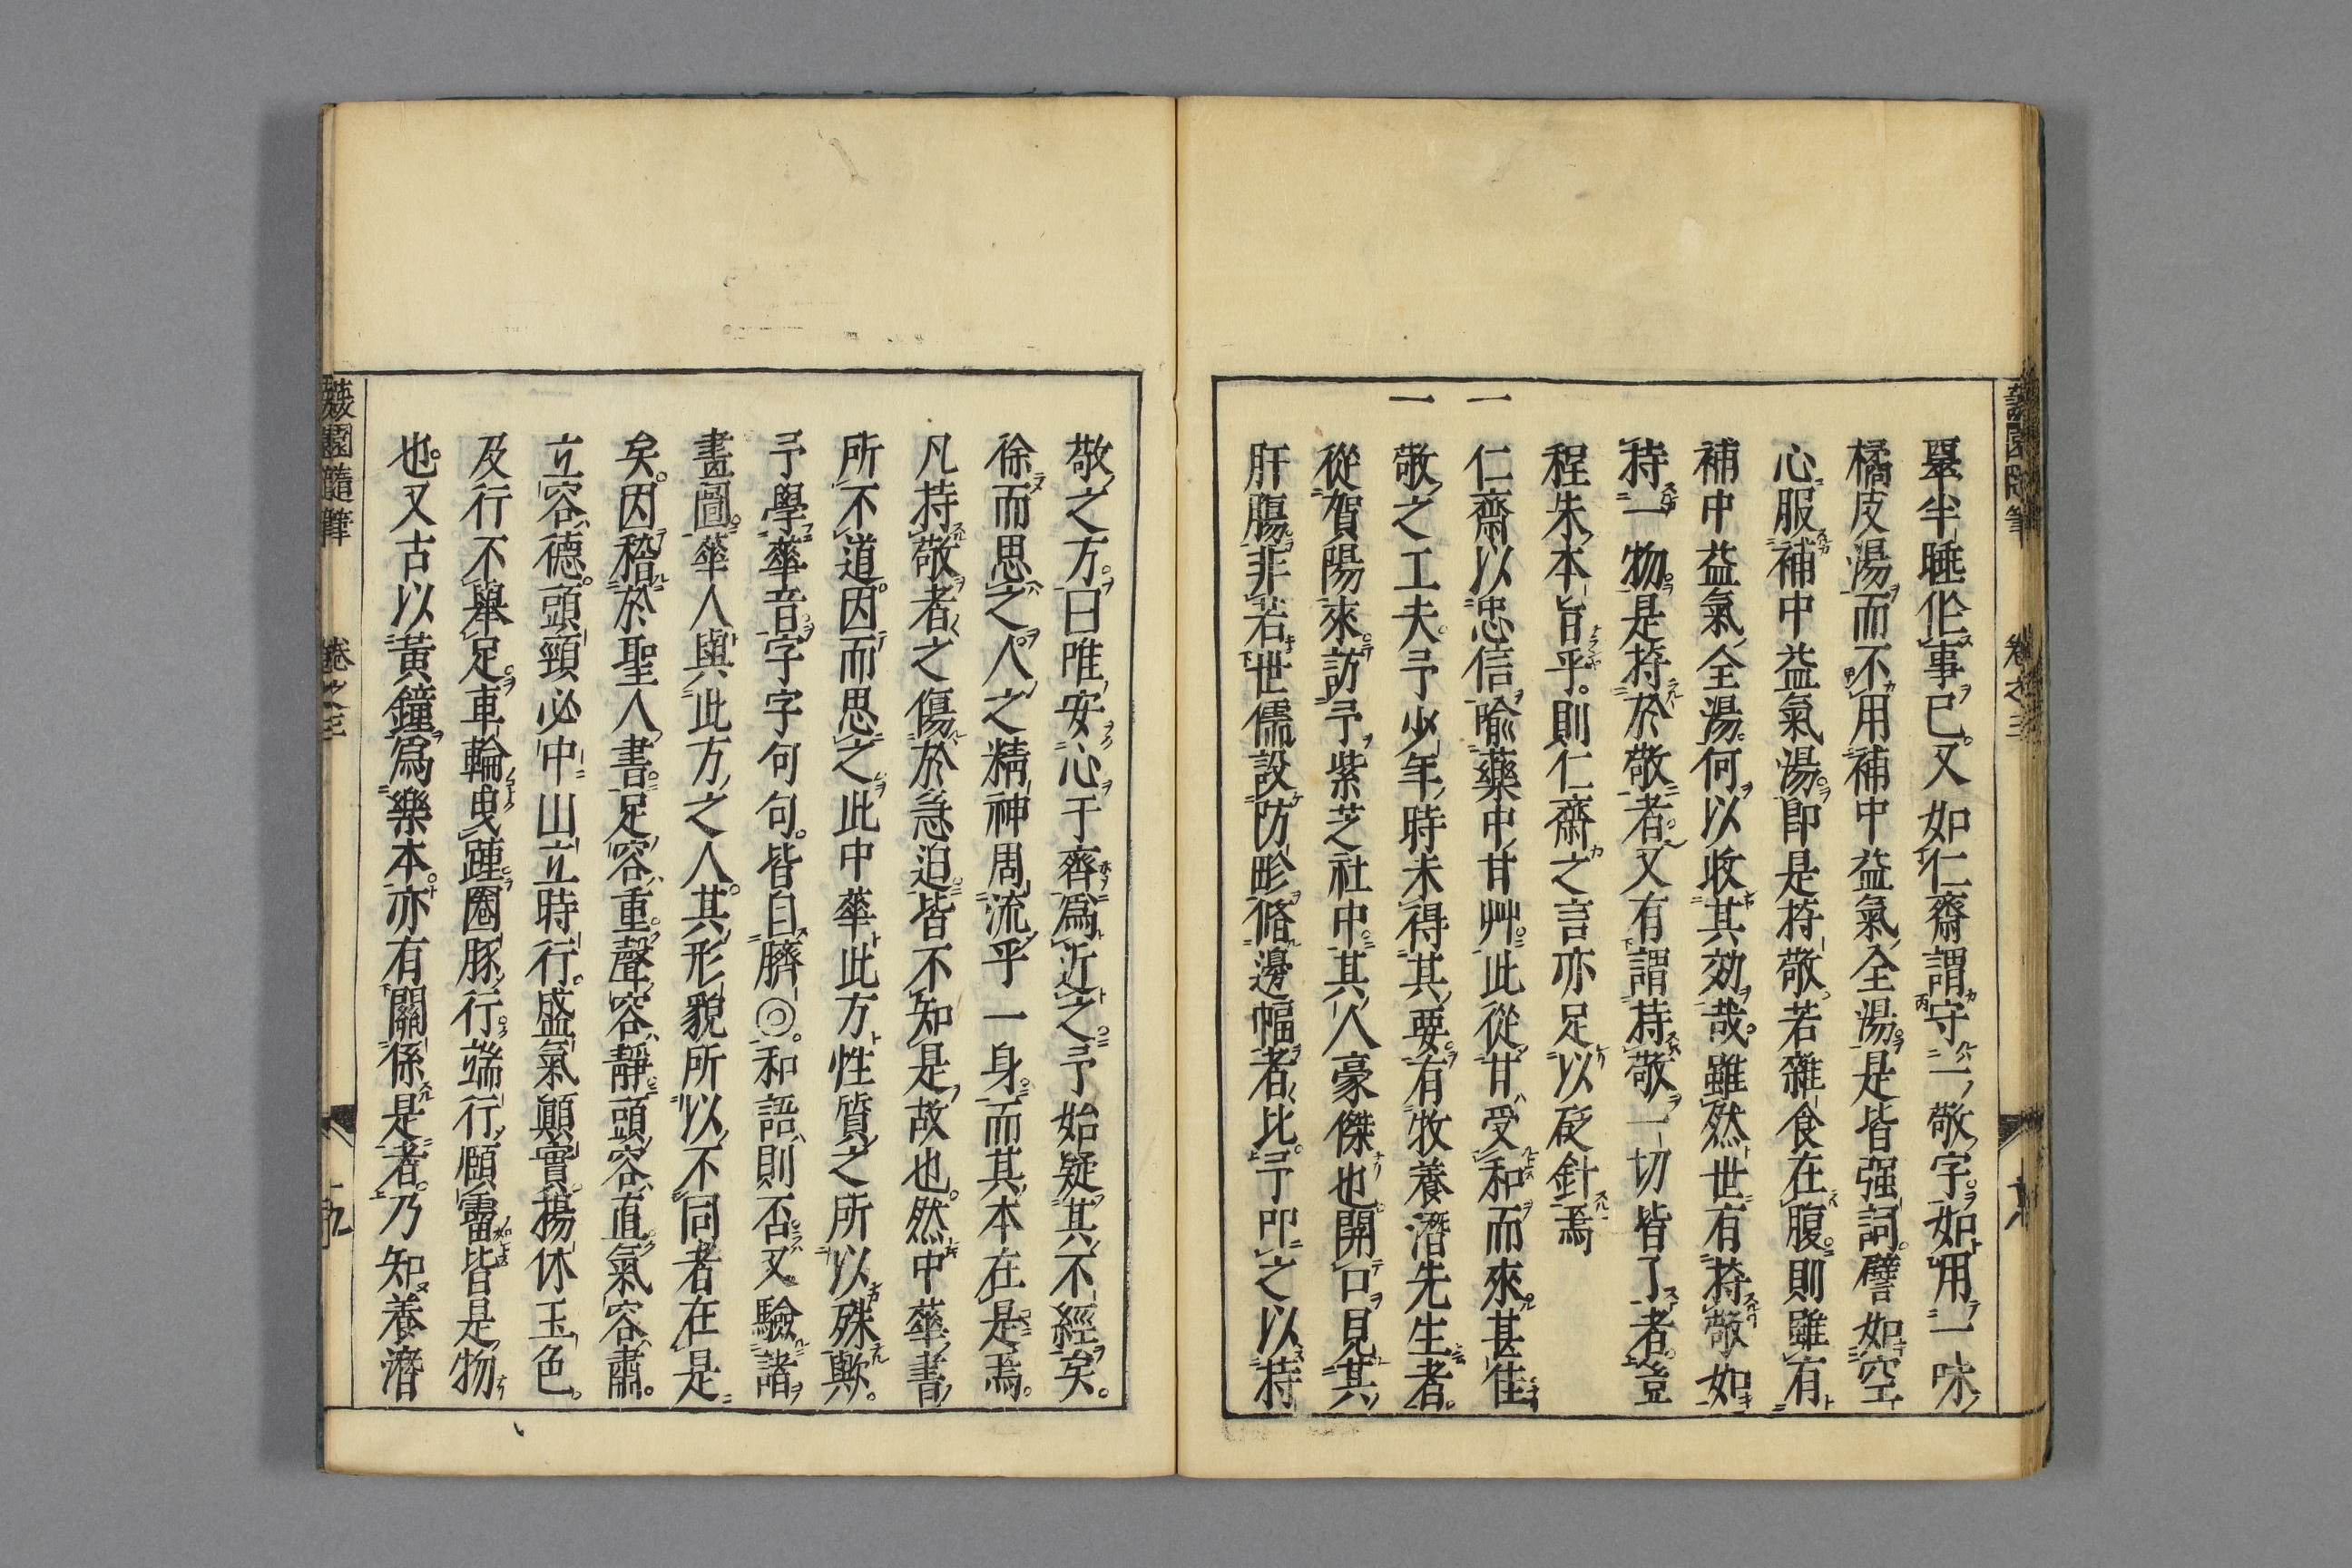 畢半睡底事已。又如仁齋謂守一敬字。如用一味
橘皮湯。而不用補中益氣全湯。是皆强詞。譬如空
心服補中益氣湯。即是持敬。若雜食在腹。則雖有
補中益氣全湯。何以收其効哉。雖然世有持敬如
持一物。是持於敬者。又有謂持敬一切皆了者。豈
程朱本旨乎。則仁齋之言亦足以砭針焉
一仁齋以忠信喩藥中甘艸。此從甘受和而來。甚佳
一敬之工夫。予少年時未得其要。有牧養潛先生者。
從賀陽來。訪予紫芝社中。其人豪傑也。開口見其
肝腸。非若世儒設防畛脩邊幅者比。予叩之以持
敬之方。曰唯安心于齊爲近之。予始疑其不經矣。
徐而思之。人之精神周流乎一身。而其本在是焉。
凡持敬者之傷於急迫。皆不知是故也。然中華書
所不道。因而思之。此中華此方性質之所以殊歟。
予學華音。字字句句。皆自臍◎。和語則否。又驗諸
畫圖。華人與此方之人。其形貌所以不同者在是
矣。因稽於聖人書。足容重。聲容靜。頭容直。氣容肅。
立容德。頭頸必中。山立時行。盛氣顚實。揚休玉色。
及行不舉足。車輪曳踵。圈豚行。端行。頤霤。皆是物
也。又古以黃鐘爲樂本。亦有關係是者。乃知養潛
蘐園隨筆 卷之三
蘐園隨筆 卷之三 九